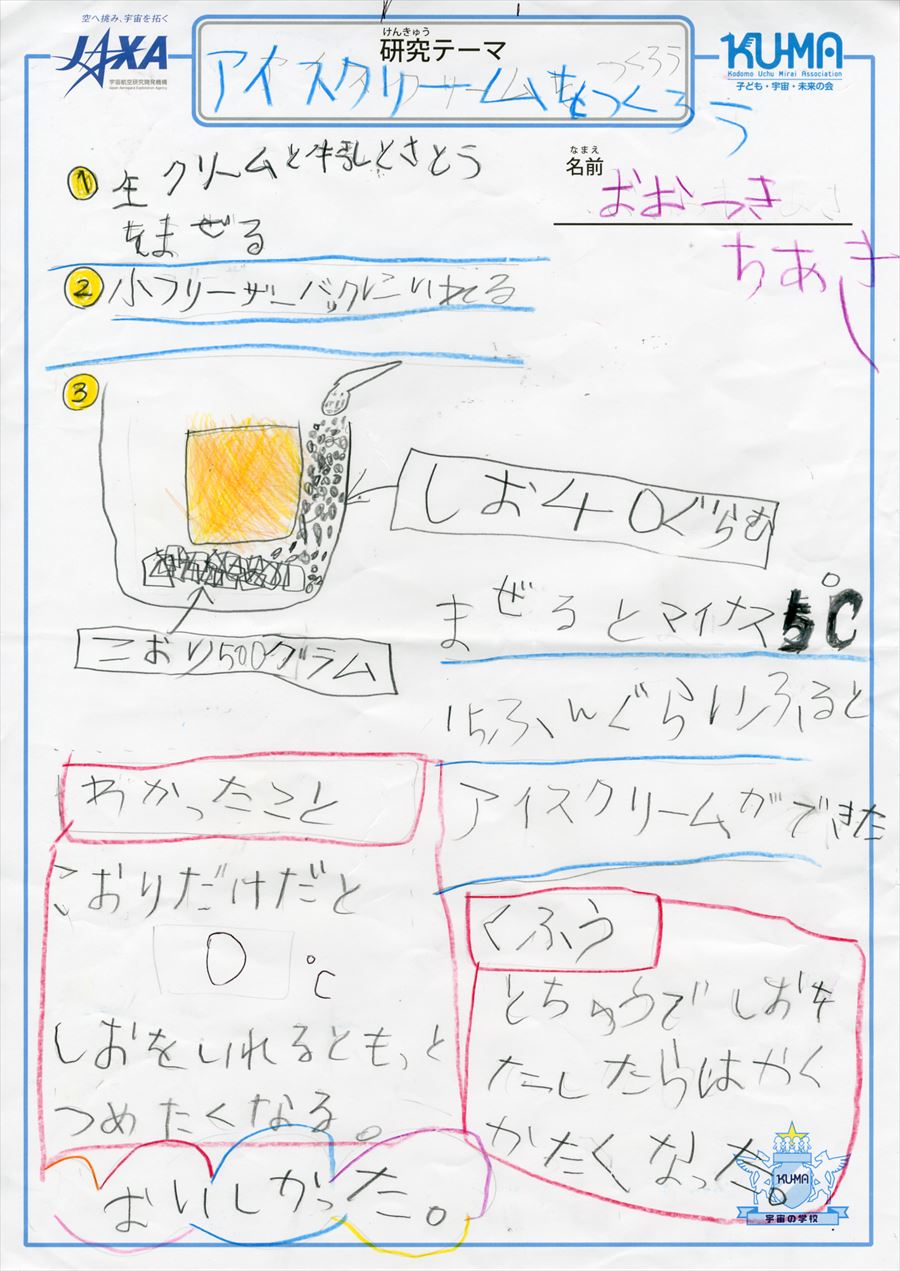 空へ挑み、宇宙を拓く
JAXA
宇宙航空研究開発機構
Japan Aerospace Exploration Agency
けんきゅう
研究テーマ
アイスクリームをつくろう
KUMA
Kodomo Uchu Mirai Association
子ども・宇宙・未来の会
なまえ
名前
おおつき
ちあき
① 生クリームと牛乳とさとう
をまぜる
② 小フリーザーバックにいれる
③
しお40ぐらむ
こおり500グラム
まぜるとマイナス5℃
15ふんぐらいふると
アイスクリームができた
わかったこと
こおりだけだと
0℃
しおをいれるともっと
つめたくなる。
おいしかった。
くふう
とちゅうでしおを
たしたらはやく
かたくなった。
KUMA
宇宙の学校